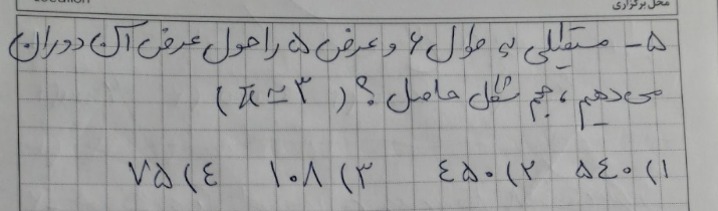 محل برگزاری
۵- مستطیلی به طول ۶ و عرض ۵ را حول عرض آن دوران
می دهیم، حجم شکل حاصل؟ (π ≃ ۳)
۱) ۵۴۰ ۲) ۴۵۰ ۳) ۱۰۸ ۴) ۷۵